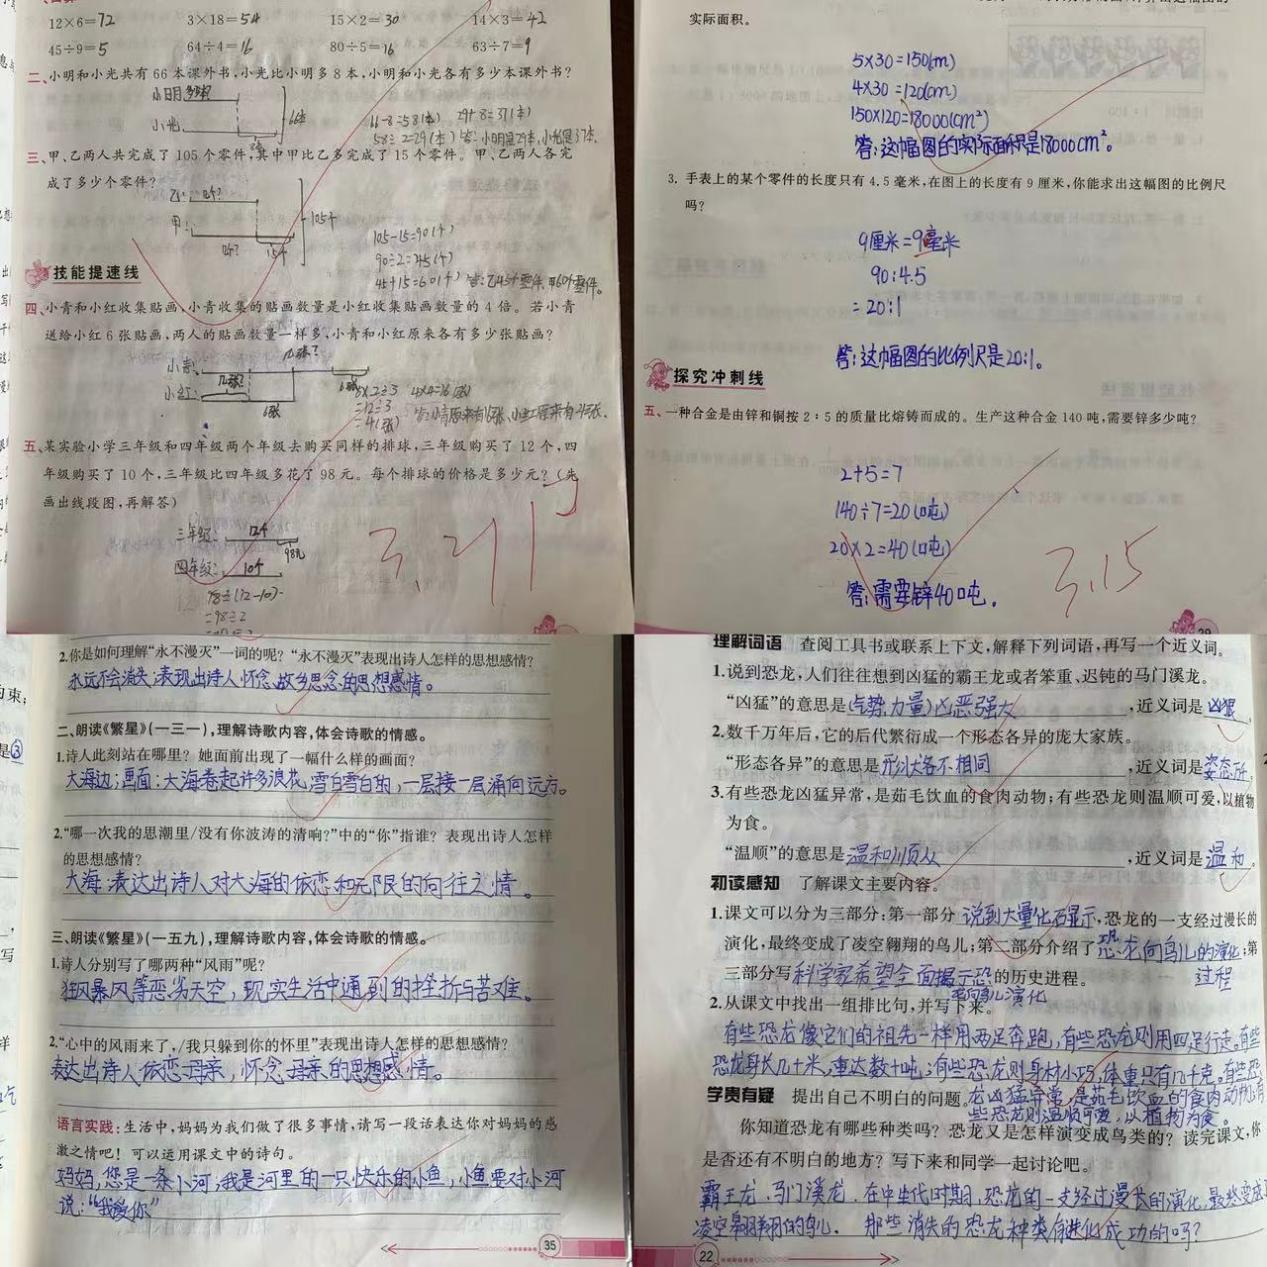 12×6=72 3×18=54 15×2=30 14×3=42
45÷9=5 64÷4=16 80÷5=16 63÷7=9
二、小明和小光共有66本课外书,小光比小明多8本,小明和小光各有多少本课外书?
小明
小光
66本
66-8=58(本) 29+8=37(本)
58÷2=29(本) 答:小明是29本,小光是37本.
三、甲、乙两人共完成了105个零件,其中甲比乙多完成了15个零件。甲、乙两人各完
成了多少个零件?
乙:
甲:
105个
15个
105-15=90(个)
90÷2=45(个)
45+15=60(个) 答:乙45个零件,甲60个零件。
技能提速线
四、小青和小红收集贴画,小青收集的贴画数量是小红收集贴画数量的4倍。若小青
送给小红6张贴画,两人的贴画数量一样多,小青和小红原来各有多少张贴画?
小青:
小红:
6张
=12÷3
=4(张)
五、某实验小学三年级和四年级两个年级去购买同样的排球,三年级购买了12个,四
年级购买了10个,三年级比四年级多花了98元。每个排球的价格是多少元?(先
画出线段图,再解答)
三年级: 12个
98元
四年级: 10个
98÷(12-10)
=98÷2
3.21
实际面积。
5×30=150(m)
4×30=120(cm)
150×120=18000(cm²)
答:这幅图的实际面积是18000cm²。
3. 手表上的某个零件的长度只有4.5毫米,在图上的长度有9厘米,你能求出这幅图的比例尺
吗?
9厘米=9毫米
90:4.5
=20:1
答:这幅图的比例尺是20:1。
探究冲刺线
五、一种合金是由锌和铜按2:5的质量比熔铸而成的。生产这种合金140吨,需要锌多少吨?
2+5=7
140÷7=20(吨)
20×2=40(吨)
答:需要锌40吨。
3.15
2.你是如何理解“永不漫灭”一词的呢?“永不漫灭”表现出诗人怎样的思想感情?
永远不会消失;表现出诗人怀念故乡思念的思想感情。
二、朗读《繁星》(一三一),理解诗歌内容,体会诗歌的情感。
1.诗人此刻站在哪里?她面前出现了一幅什么样的画面?
大海边;画面:大海卷起许多浪花,雪白雪白的,一层接一层涌向远方。
2.“哪一次我的思潮里/没有你波涛的清响?”中的“你”指谁?表现出诗人怎样
的思想感情?
大海;表达出诗人对大海的依恋和无限的向往之情。
三、朗读《繁星》(一五九),理解诗歌内容,体会诗歌的情感。
1.诗人分别写了哪两种“风雨”呢?
狂风暴风等恶劣天空,现实生活中遇到的挫折与苦难。
2.“心中的风雨来了,/我只躲到你的怀里”表现出诗人怎样的思想感情?
表达出诗人依恋母亲,怀念母亲的思想感情。
语言实践:生活中,妈妈为我们做了很多事情,请写一段话表达你对妈妈的感
激之情吧!可以运用课文中的诗句。
妈妈,您是一条小河,我是河里的一只快乐的小鱼,小鱼要对小河
说:“我爱你”
35
理解词语 查阅工具书或联系上下文,解释下列词语,再写一个近义词。
1.说到恐龙,人们往往想到凶猛的霸王龙或者笨重、迟钝的马门溪龙。
“凶猛”的意思是(气势,力量)凶恶强大,近义词是凶狠
2.数千万年后,它的后代繁衍成一个形态各异的庞大家族。
“形态各异”的意思是形状各不相同,近义词是姿态
3.有些恐龙凶猛异常,是茹毛饮血的食肉动物;有些恐龙则温顺可爱,以植物
为食。
“温顺”的意思是温和顺从,近义词是温和。
初读感知 了解课文主要内容。
1.课文可以分为三部分:第一部分说到大量化石显示,恐龙的一支经过漫长的
演化,最终变成了凌空翱翔的鸟儿;第二部分介绍了恐龙向鸟儿的演化过程;第
三部分写科学家希望全面揭示恐龙向鸟儿演化的历史进程。
2.从课文中找出一组排比句,并写下来。
有些恐龙像它们的祖先一样用两足奔跑,有些恐龙则用四足行走。有些
恐龙身长几十米,重达数十吨;有些恐龙则身材小巧,体重只有几千克。有些恐
龙凶猛异常,是茹毛饮血的食肉动物;有
些恐龙则温顺可爱,以植物为食。
学贵有疑 提出自己不明白的问题。
你知道恐龙有哪些种类吗?恐龙又是怎样演变成鸟类的?读完课文,你
是否还有不明白的地方?写下来和同学一起讨论吧。
霸王龙、马门溪龙。在中生代时期,恐龙的一支经过漫长的演化,最终变成了
凌空翱翔的鸟儿。那些消失的恐龙种类有进化成功的吗?
22